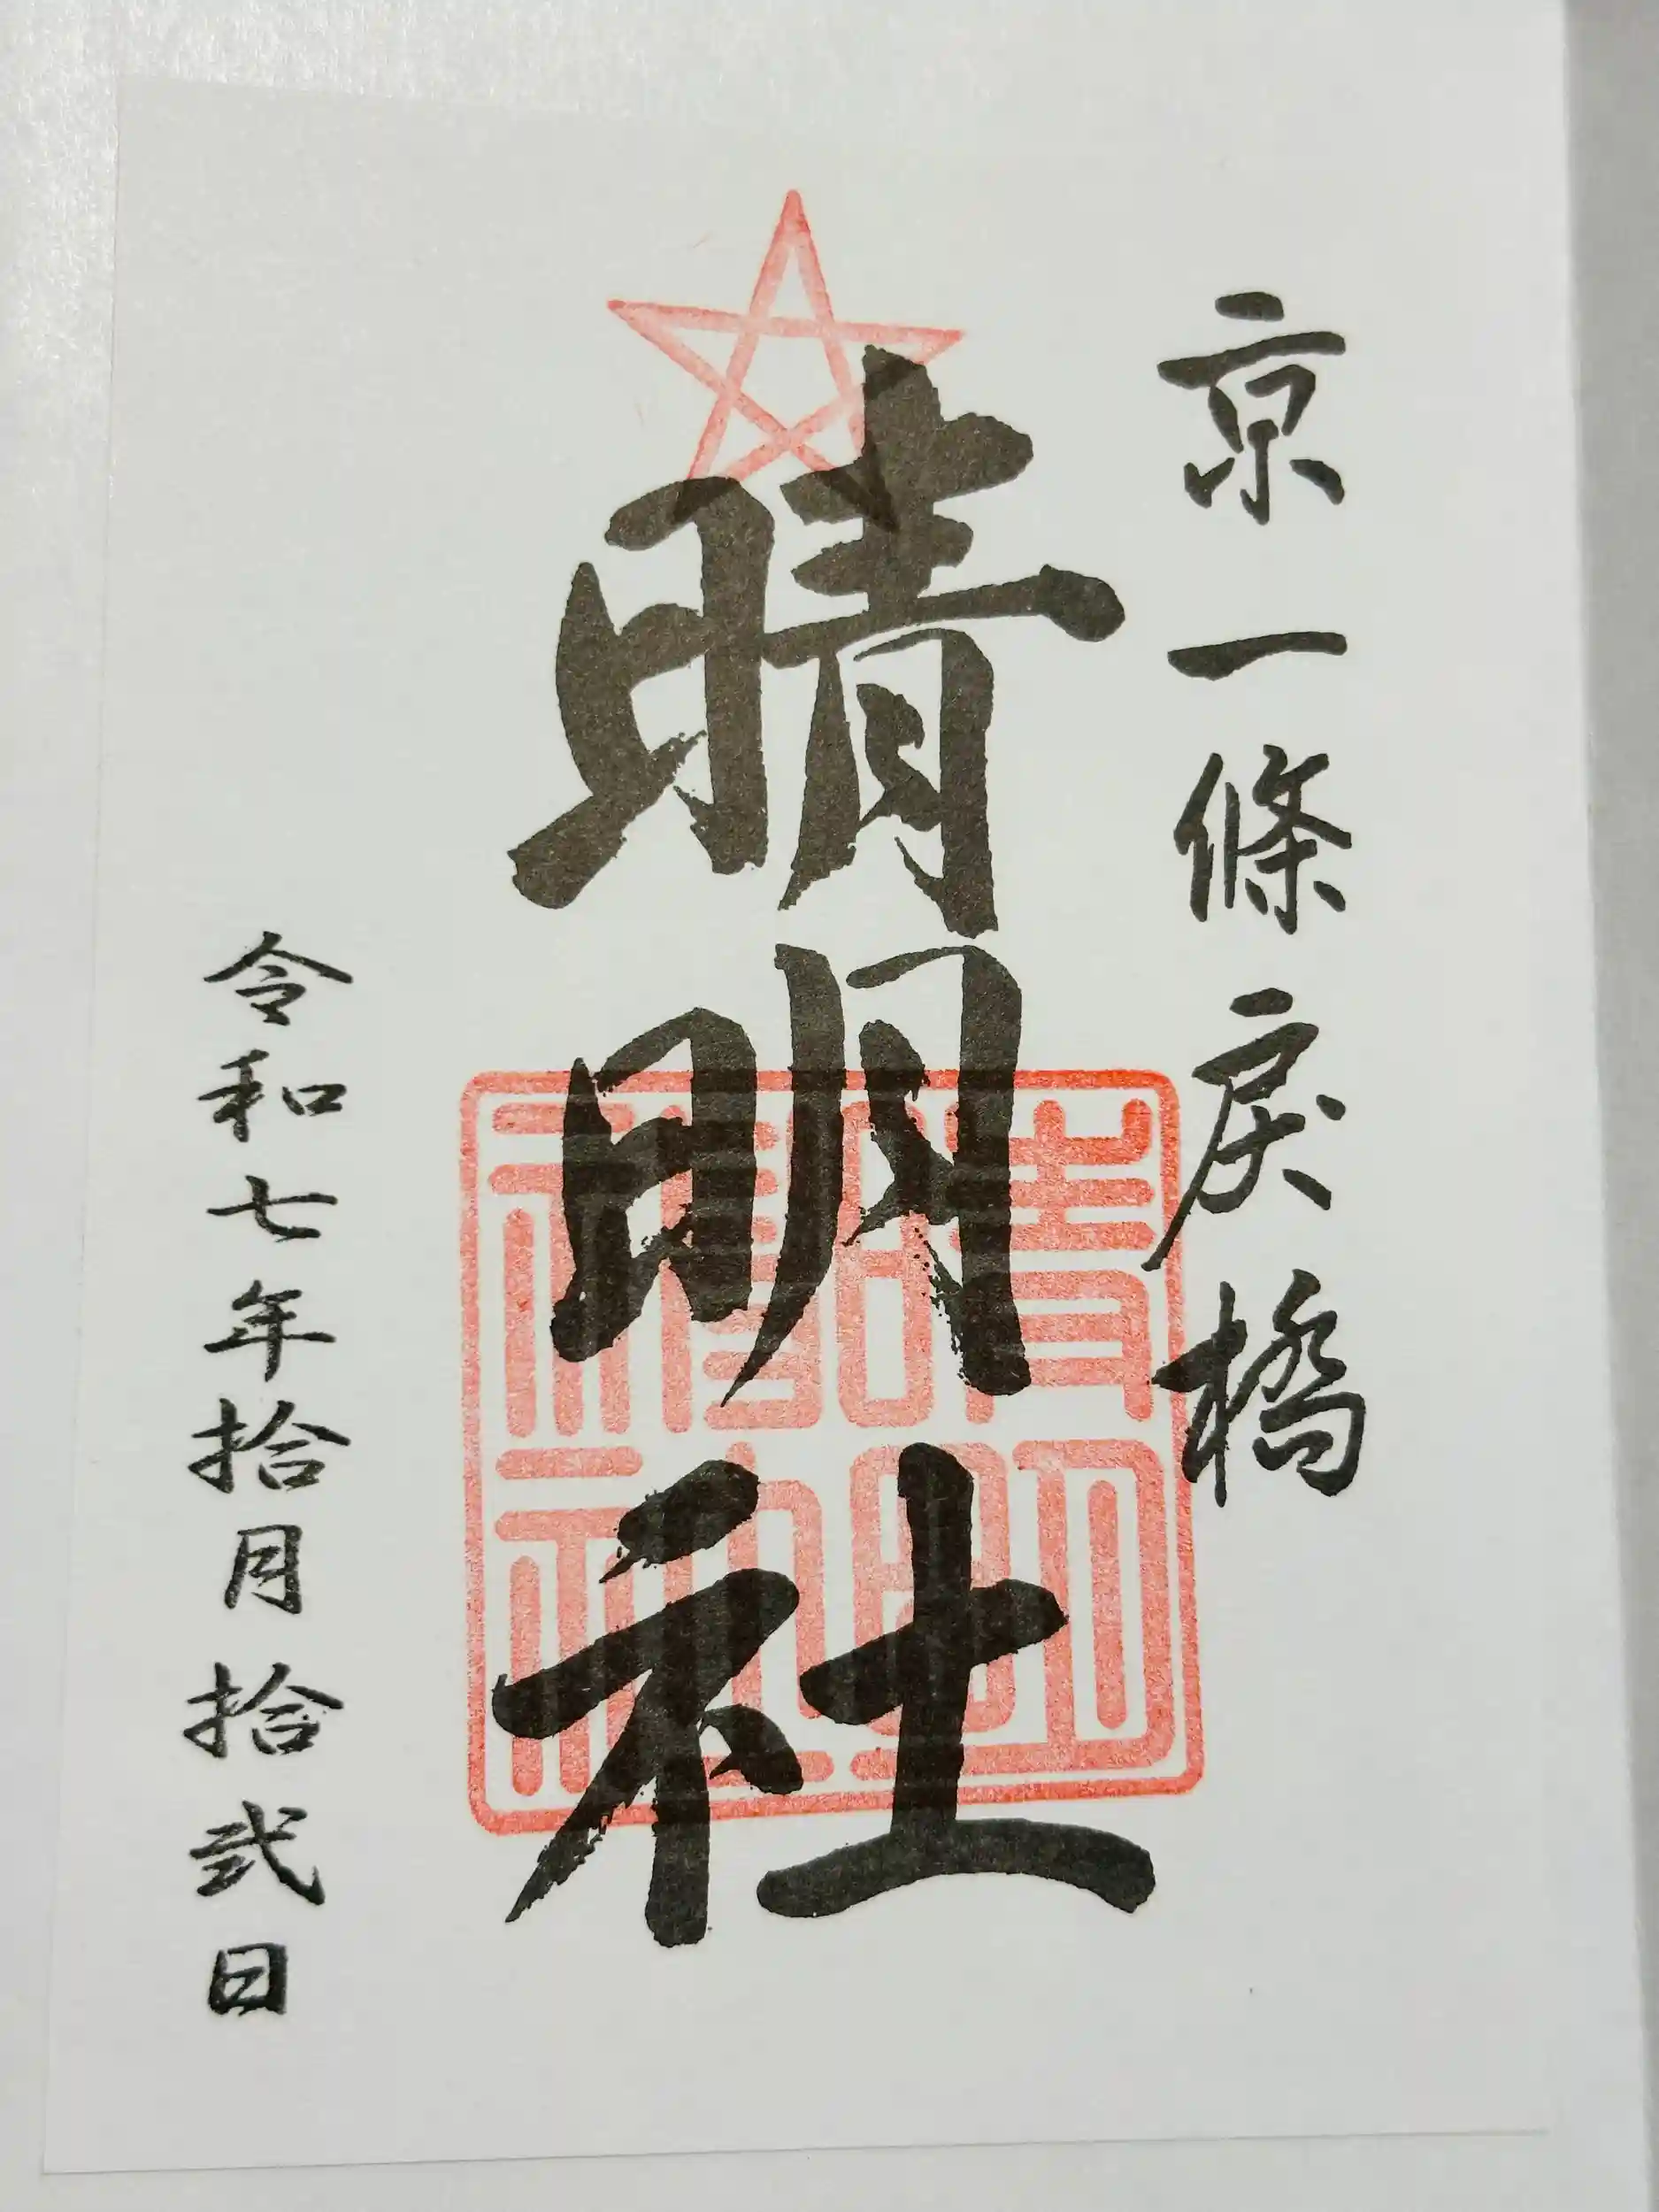 京一條戻橋
晴明社
晴明神社
令和七年拾月拾弐日